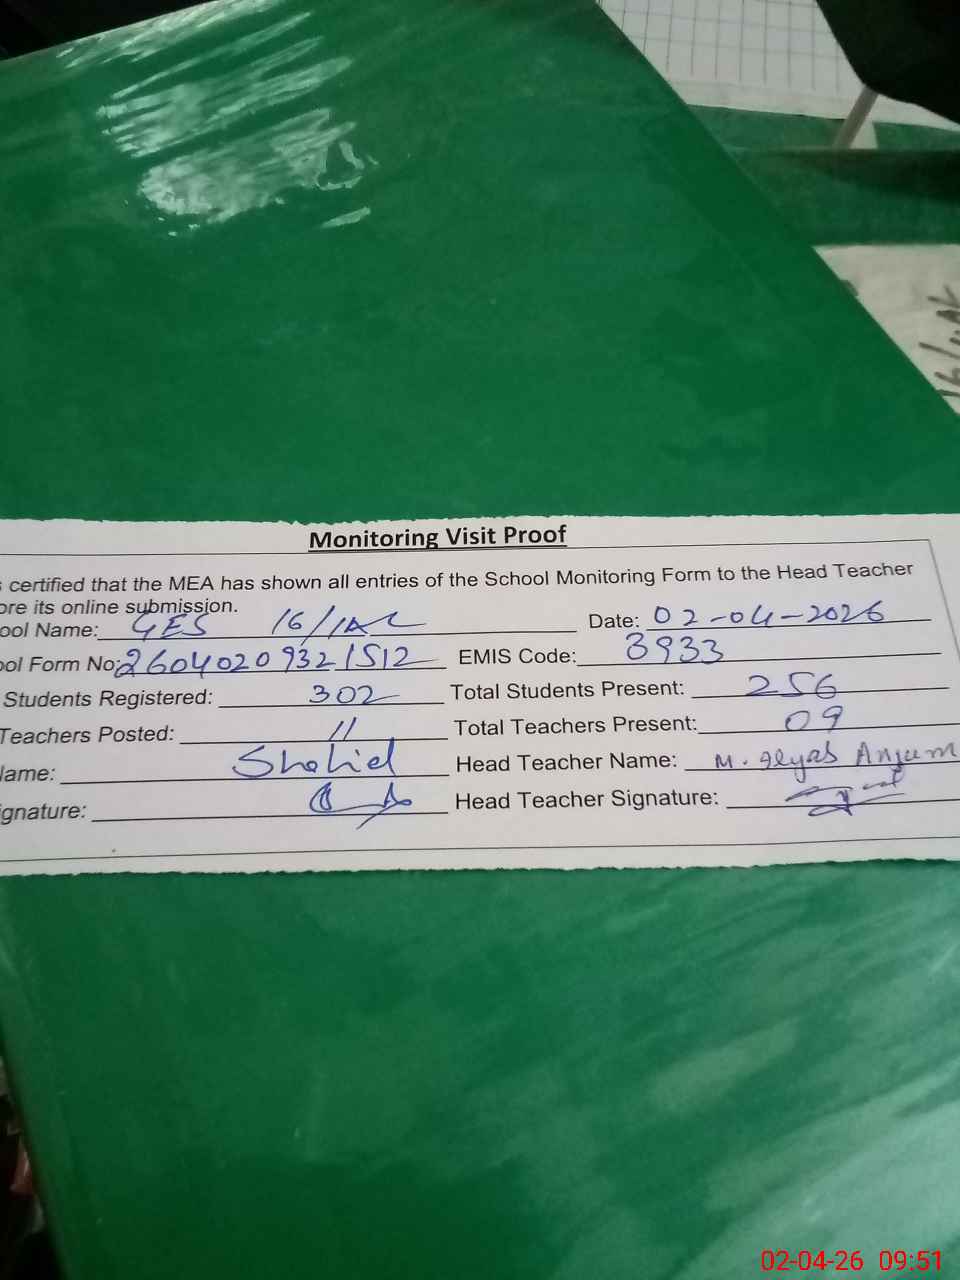 Monitoring Visit Proof
certified that the MEA has shown all entries of the School Monitoring Form to the Head Teacher
ore its online submission.
ool Name: GES 16/1AL Date: 02-04-2026
ool Form No: 26040209321512 EMIS Code: 3933
Students Registered: 302 Total Students Present: 256
Teachers Posted: 11 Total Teachers Present: 09
lame: Shahid Head Teacher Name: M. Ilyas Anjum
gnature: Head Teacher Signature:
02-04-26 09:51